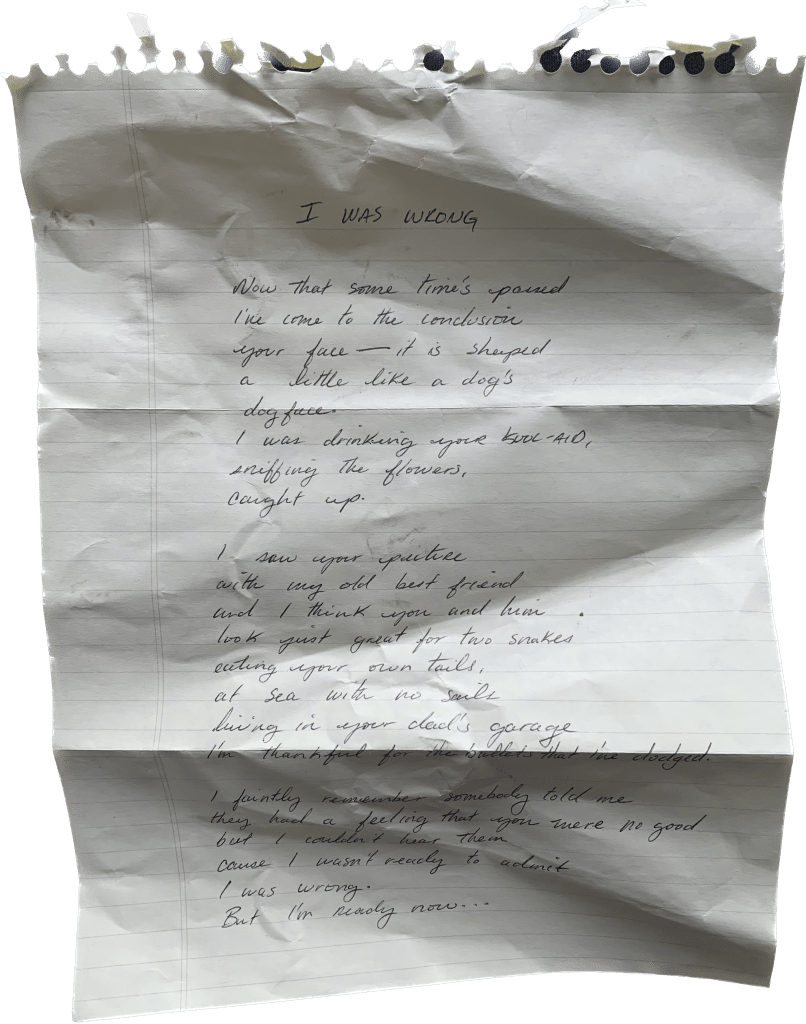 I WAS WRONG
Now that some time's passed
I've come to the conclusion
your face — it is shaped
a little like a dog's
dogface.
I was drinking your KOOL-AID,
sniffing the flowers,
caught up.
I saw your picture
with my old best friend
and I think you and him
look just great for two snakes
eating your own tails,
at sea with no sails
living in your dad's garage
I'm thankful for the bullets that I've dodged.
I faintly remember somebody told me
they had a feeling that you were no good
but I couldn't hear them
cause I wasn't ready to admit
I was wrong.
But I'm ready now...